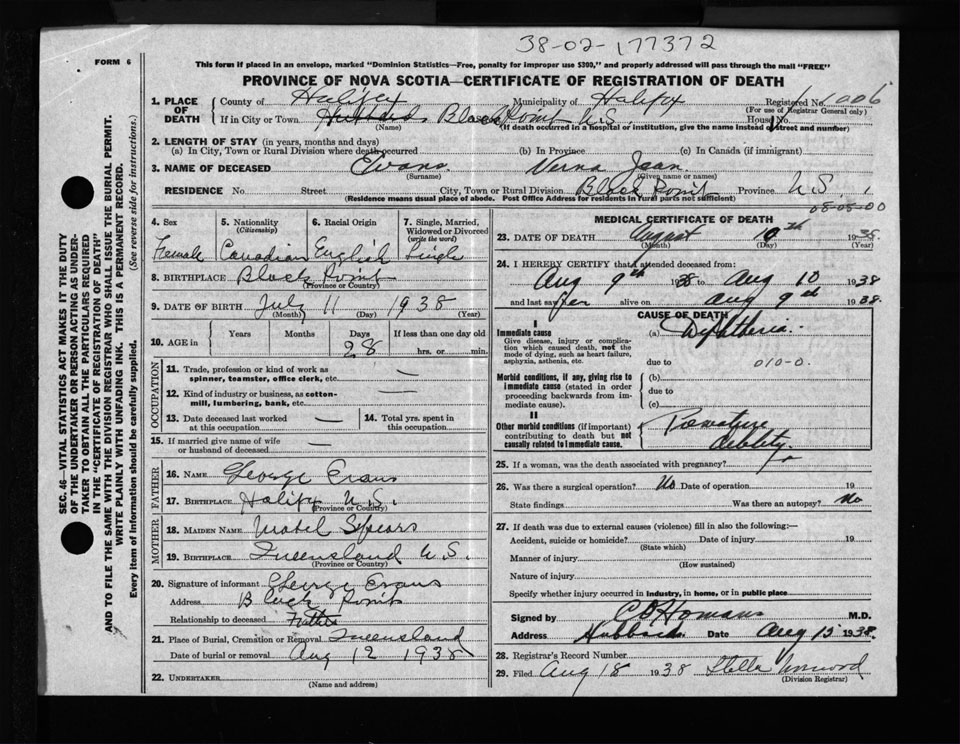 38-02-177372
FORM 6
This form if placed in an envelope, marked "Dominion Statistics—Free, penalty for improper use $300," and properly addressed will pass through the mail "FREE"
PROVINCE OF NOVA SCOTIA—CERTIFICATE OF REGISTRATION OF DEATH
1. PLACE OF DEATH County of Halifax Municipality of Halifax Registered No. 1006
(For use of Registrar General only)
If in City or Town Hubbards Black Point N.S. House No.
(Name) (If death occurred in a hospital or institution, give the name instead of street and number)
2. LENGTH OF STAY (in years, months and days)
(a) In City, Town or Rural Division where death occurred (b) In Province (c) In Canada (if immigrant)
3. NAME OF DECEASED Evans Verna Jean
(Surname) (Given name or names)
RESIDENCE No. Street City, Town or Rural Division Black Point Province N.S.
(Residence means usual place of abode. Post Office Address for residents in rural parts not sufficient)
08-05-00
4. Sex Female
5. Nationality (Citizenship) Canadian
6. Racial Origin English
7. Single, Married, Widowed or Divorced (write the word) Single
8. BIRTHPLACE Black Point
(Province or Country)
9. DATE OF BIRTH July 11 1938
(Month) (Day) (Year)
10. AGE in Years Months Days 28 If less than one day old hrs. or min.
OCCUPATION
11. Trade, profession or kind of work as spinner, teamster, office clerk, etc. —
12. Kind of industry or business, as cotton-mill, lumbering, bank, etc. —
13. Date deceased last worked at this occupation —
14. Total yrs. spent in this occupation
15. If married give name of wife or husband of deceased —
FATHER
16. NAME George Evans
17. BIRTHPLACE Halifax N.S.
(Province or Country)
MOTHER
18. MAIDEN NAME Mabel Spears
19. BIRTHPLACE Queensland N.S.
(Province or Country)
20. Signature of informant George Evans
Address Black Point
Relationship to deceased Father
21. Place of Burial, Cremation or Removal Queensland
Date of burial or removal Aug 12 1938
22. UNDERTAKER
(Name and address)
MEDICAL CERTIFICATE OF DEATH
23. DATE OF DEATH August 10th 1938
(Month) (Day) (Year)
24. I HEREBY CERTIFY that I attended deceased from:
Aug 9th 1938 to Aug 10 1938
and last saw her alive on Aug 9th 1938.
CAUSE OF DEATH
I
Immediate cause
Give disease, injury or complication which caused death, not the mode of dying, such as heart failure, asphyxia, asthenia, etc.
(a) Diphtheria
due to 010-0.
Morbid conditions, if any, giving rise to immediate cause (stated in order proceeding backwards from immediate cause).
(b)
due to
(c)
II
Other morbid conditions (if important) contributing to death but not causally related to immediate cause.
debility
25. If a woman, was the death associated with pregnancy?
26. Was there a surgical operation? No Date of operation 19
State findings Was there an autopsy? No
27. If death was due to external causes (violence) fill in also the following:—
Accident, suicide or homicide? Date of injury 19
(State which)
Manner of injury
(How sustained)
Nature of injury
Specify whether injury occurred in industry, in home, or in public place
Signed by C B Homans M.D.
Address Hubbards Date Aug 15 1938.
28. Registrar's Record Number
29. Filed Aug 18 1938 Stella Norwood
(Division Registrar)
SEC. 46—VITAL STATISTICS ACT MAKES IT THE DUTY
OF THE UNDERTAKER OR PERSON ACTING AS UNDER-
TAKER TO OBTAIN ALL THE PARTICULARS REQUIRED
IN THE "CERTIFICATE OF REGISTRATION OF DEATH"
AND TO FILE THE SAME WITH THE DIVISION REGISTRAR WHO SHALL ISSUE THE BURIAL PERMIT.
WRITE PLAINLY WITH UNFADING INK. THIS IS A PERMANENT RECORD.
Every item of information should be carefully supplied. (See reverse side for instructions.)